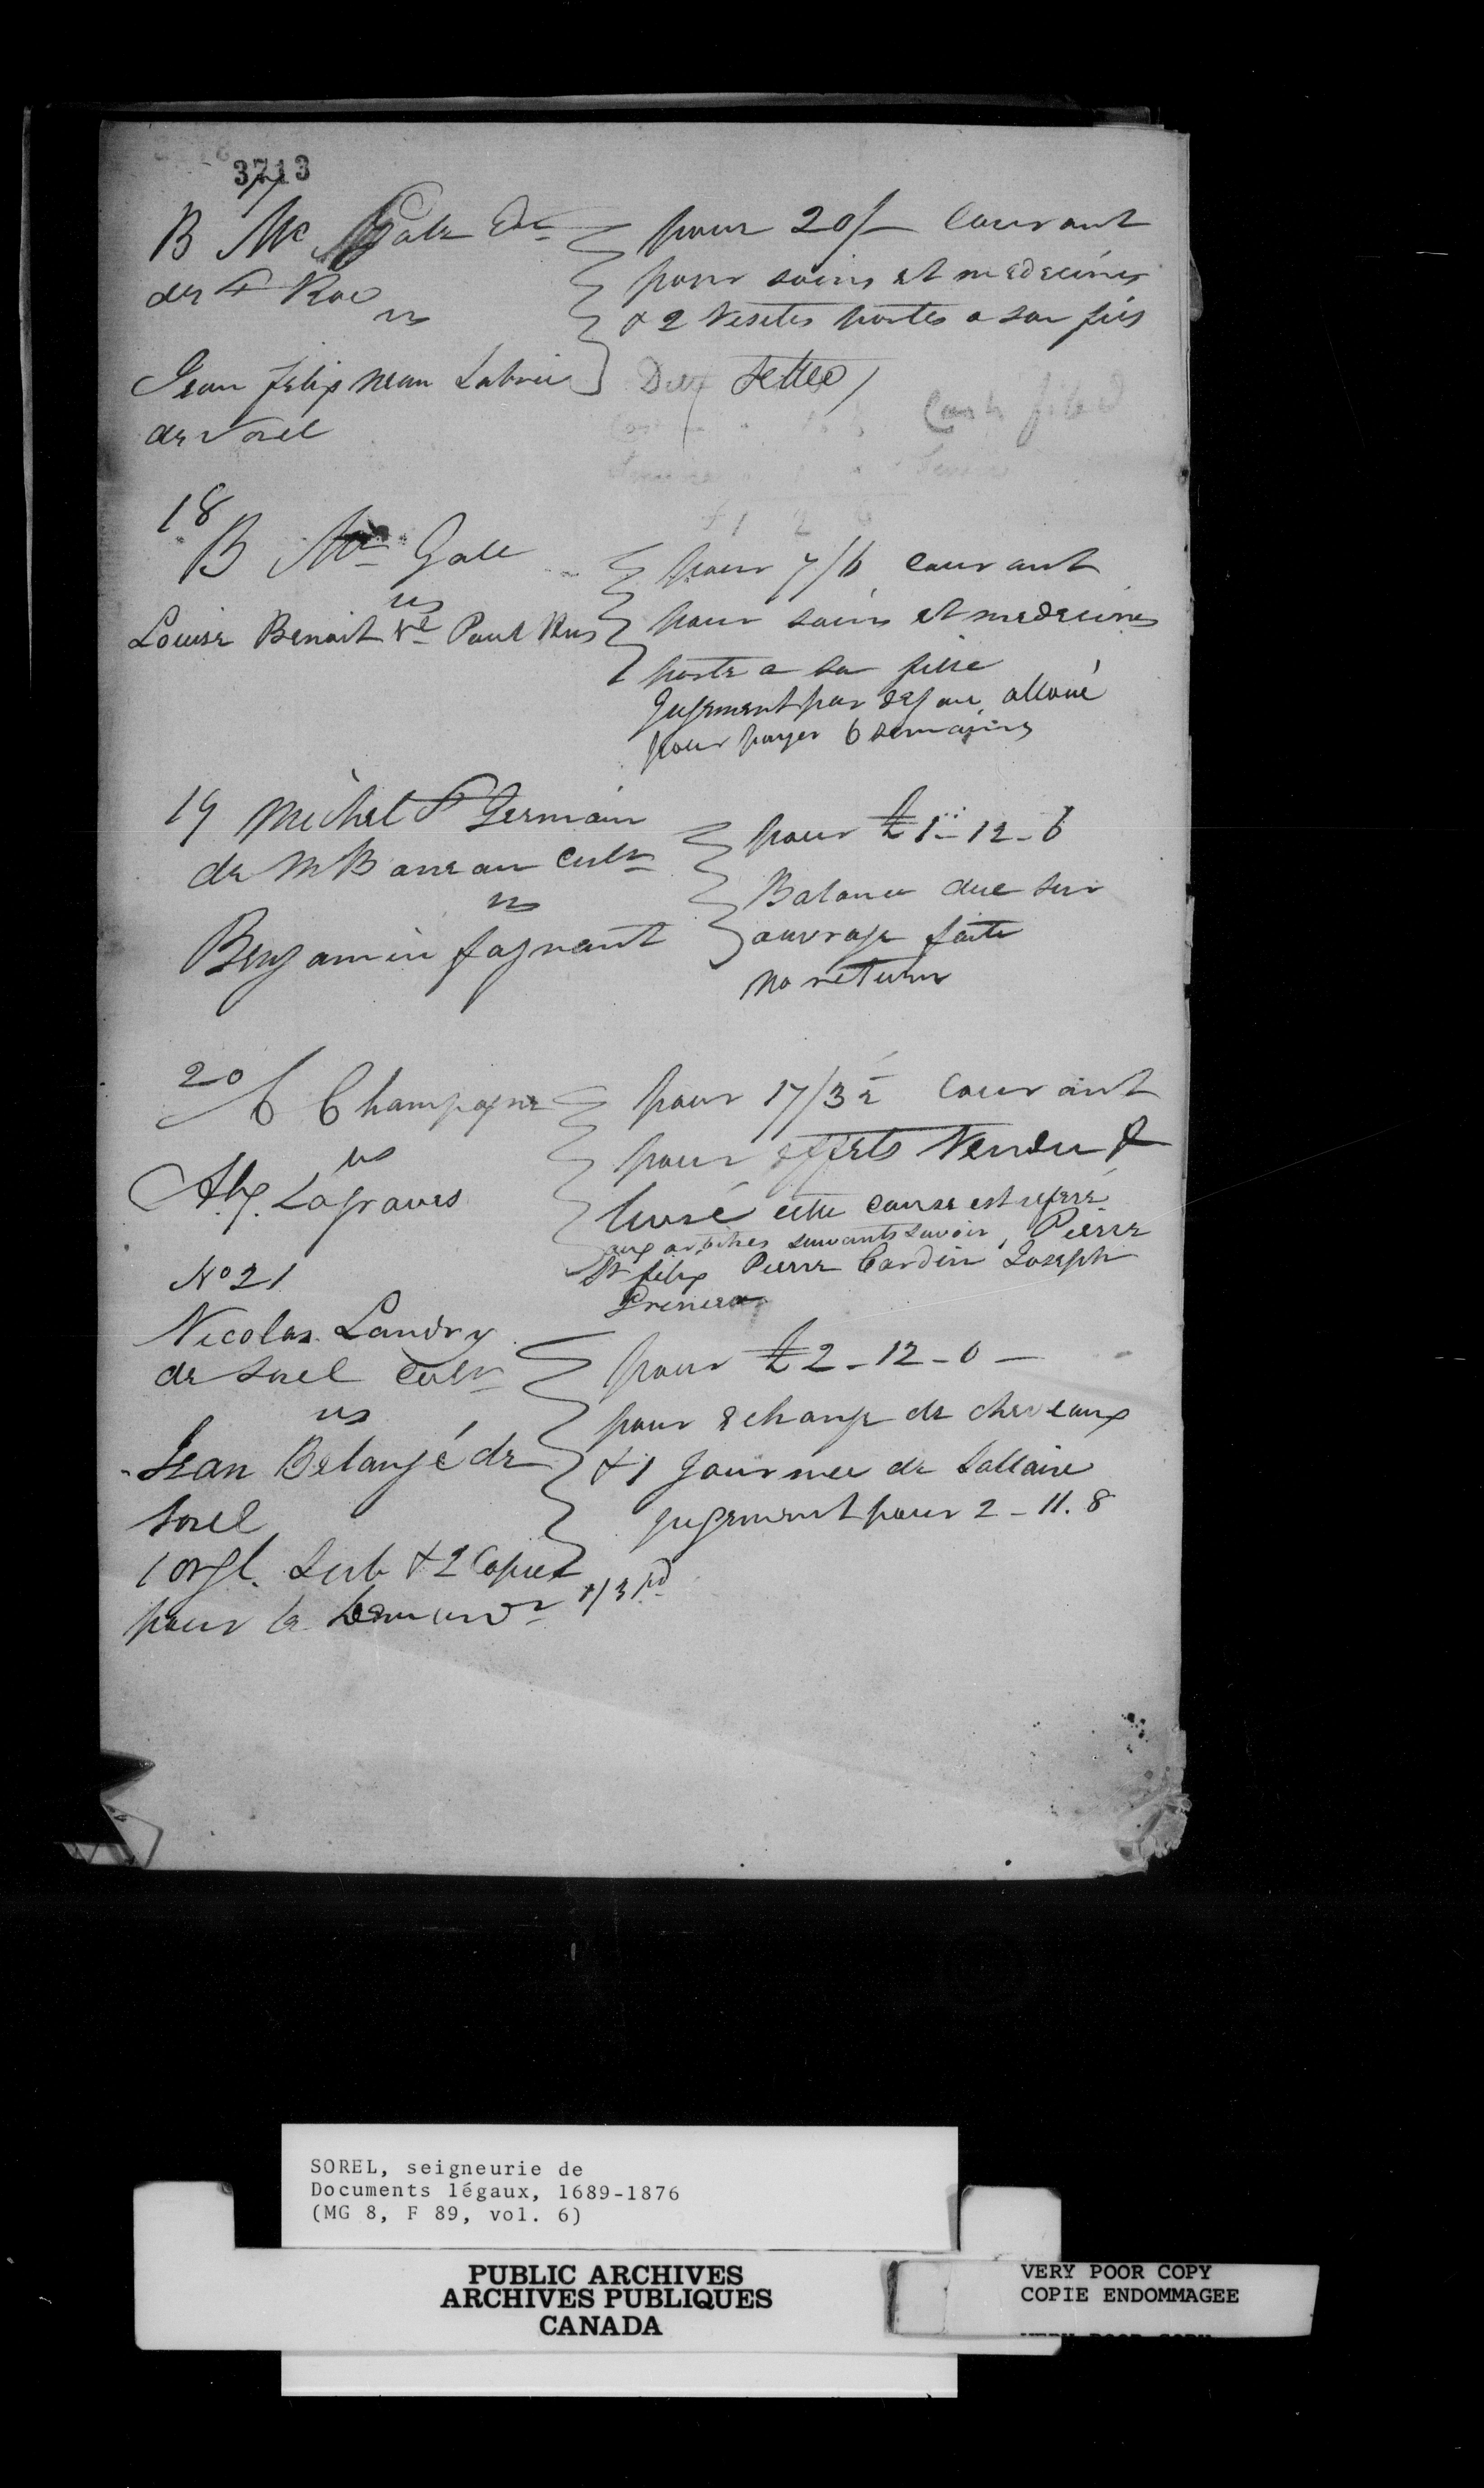 3713
17
B Mc Gale Dr
de
vs
Jean felix
de Sorel
pour 20/- Courant
pour soins et medecines
& 2 visites portes a son fils
Dett settled
Cash filed
18
B Mc Gale
vs
Louise Benoit Ve Paul Hus
pour 7/6 courant
pour soins et medecines
porte a sa fille
Jugement par defau alloué
pour payer 6 semaines
19 Michel St Germain
de Cultr
vs
Benjamin fagnant
pour £1-12-6
Balance due sur
ouvrage faite
no return
20
C Champagne
vs
Alx. Lagraves
pour 17/3½ Courant
pour effets vendu &
livré cette cause est referé
aux arbitres suivants savoir, Pierre
St felix Pierre Cardin Joseph
No 21
Nicolas Landry
de Sorel Cultr
vs
Jean Belangé de
Sorel
1 orgl. Sub & 2 Copies
pour le Demandr 1/3 pd
pour £2-12-0-
pour echange de cheveaux
& 1 Journee de Sallaire
jugement pour 2-11.8
SOREL, seigneurie de
Documents légaux, 1689-1876
(MG 8, F 89, vol. 6)
PUBLIC ARCHIVES
ARCHIVES PUBLIQUES
CANADA
VERY POOR COPY
COPIE ENDOMMAGEE
VERY POOR COPY